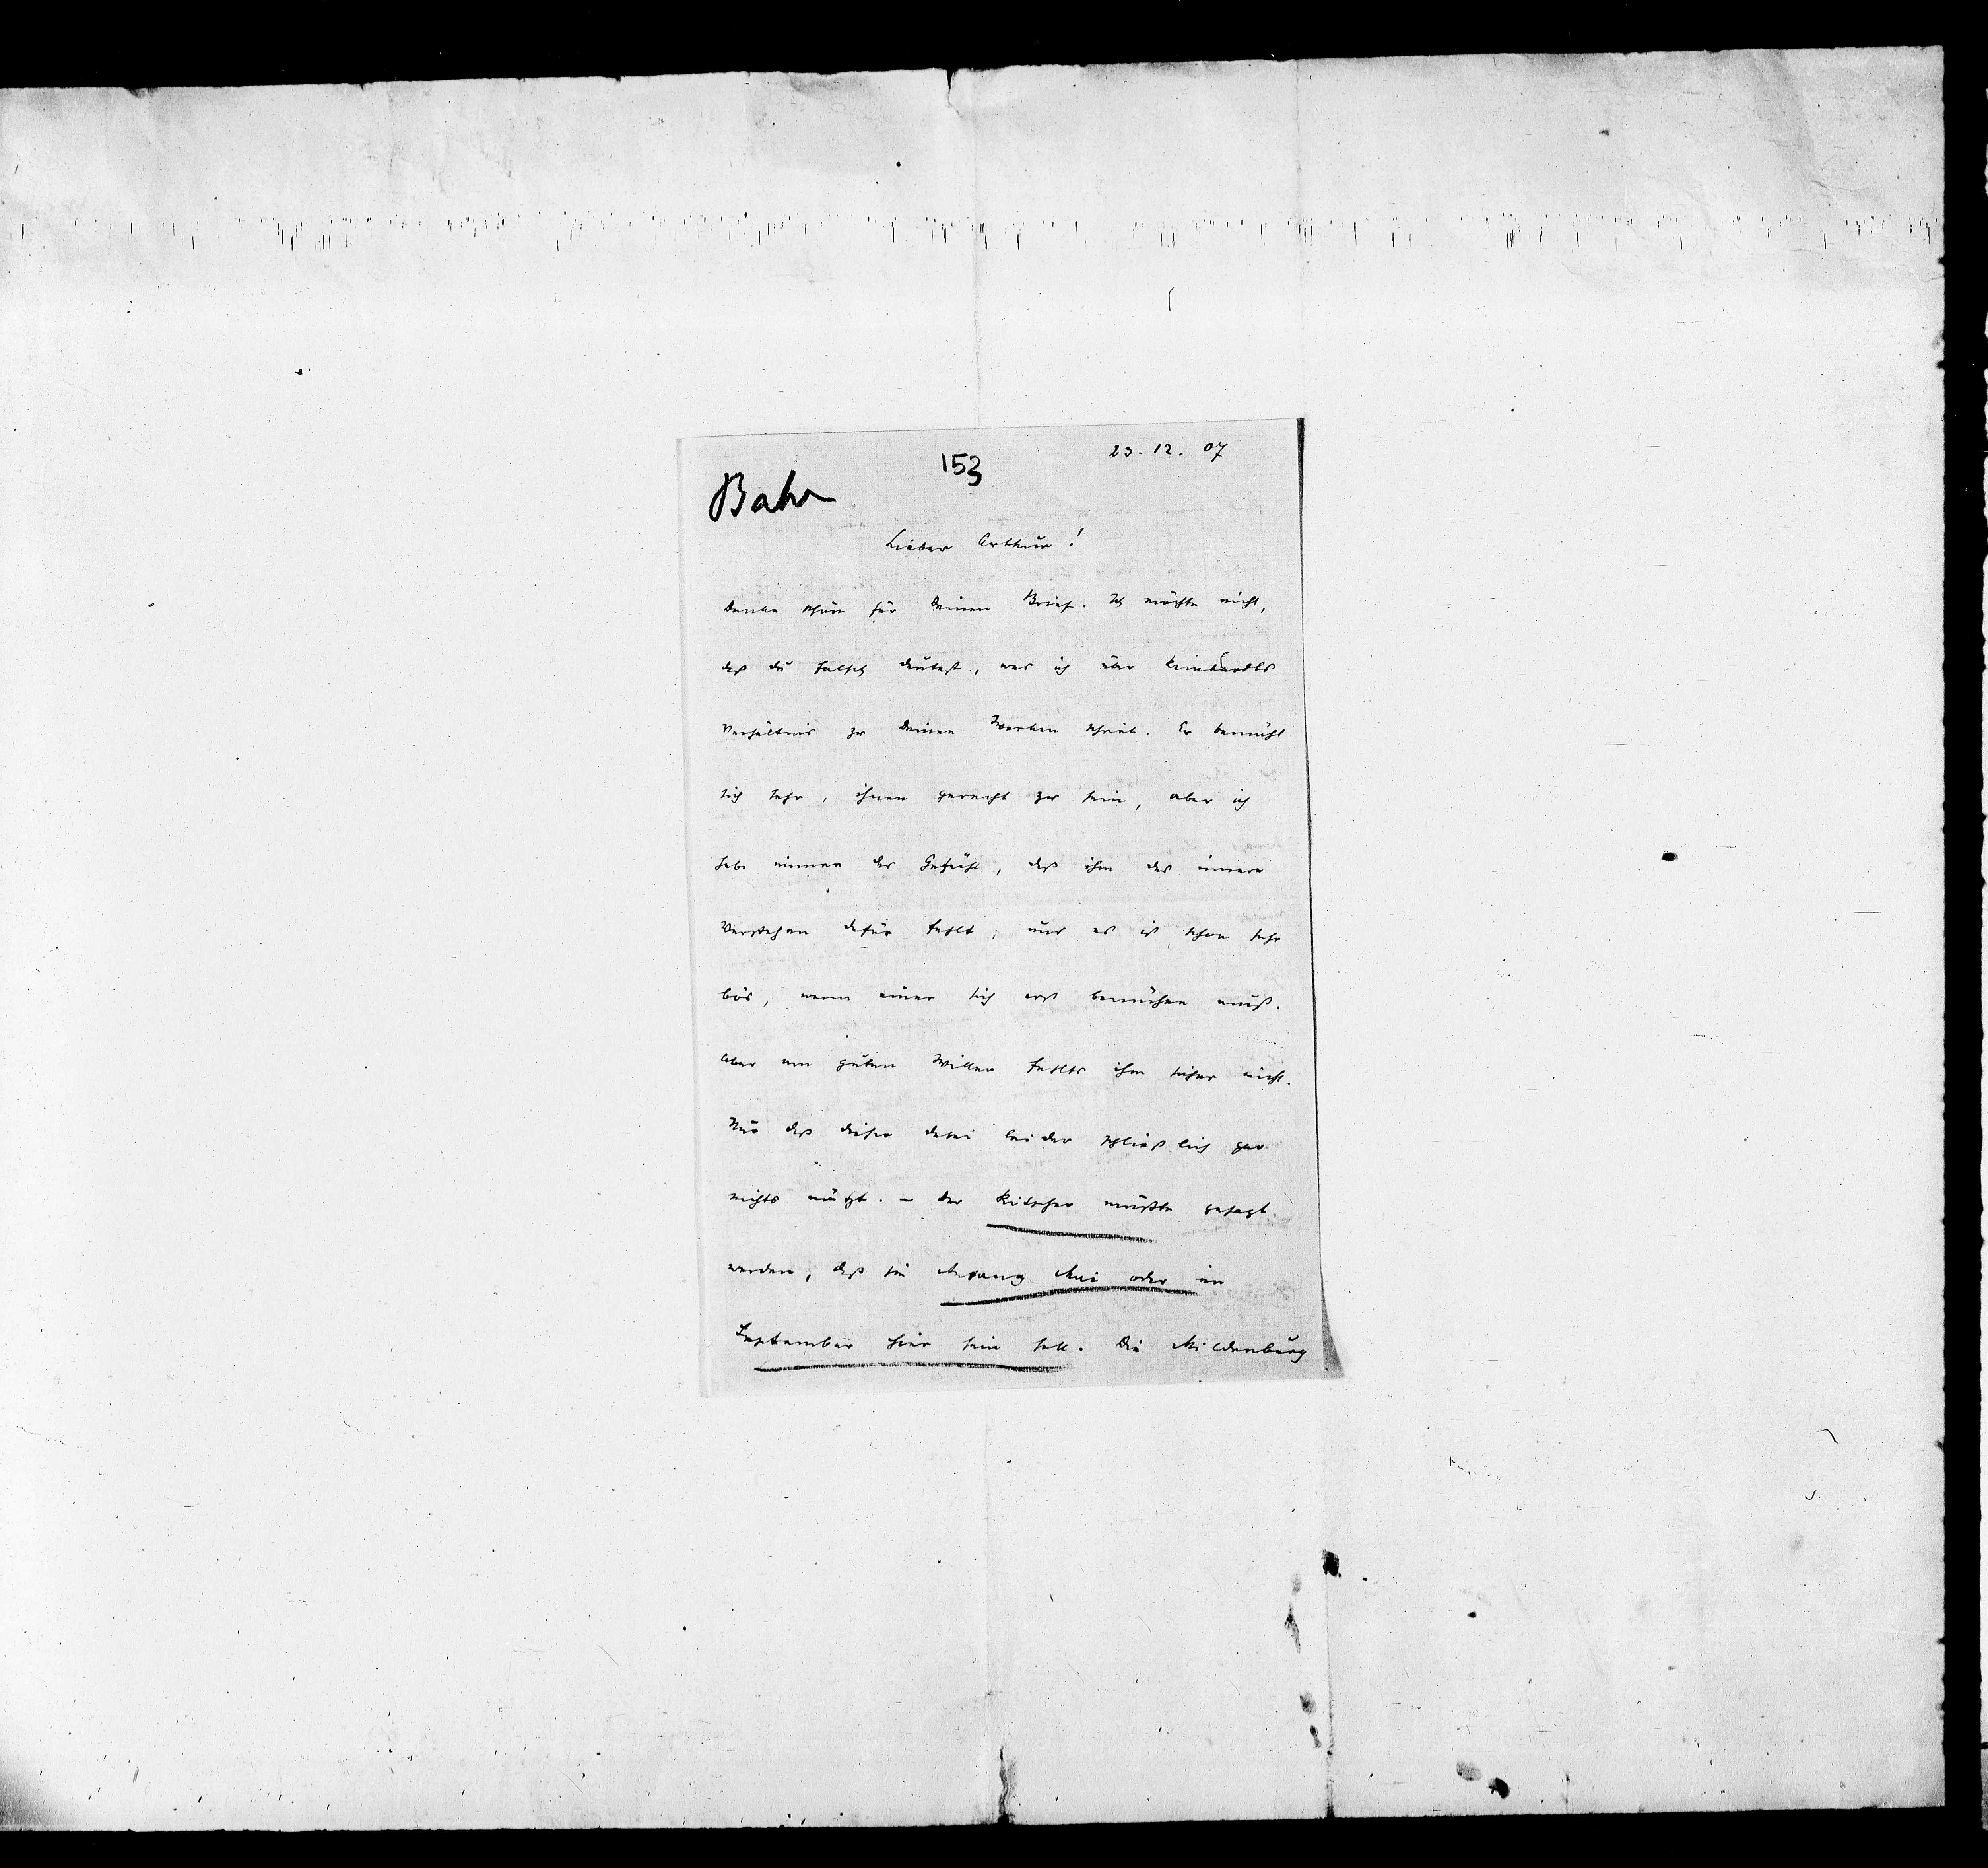 153
23. 12. 07
Bahr
Lieber Arthur!
Danke schön für Deinen Brief. Ich möchte nicht,
daß Du falsch deutest, was ich über Reinhardts
Verhältnis zu Deinen Werken schrieb. Er bemüht
sich sehr, ihnen gerecht zu sein, aber ich
habe immer das Gefühl, daß ihm das innere
Verstehen dafür fehlt; und es ist schon sehr
bös, wenn einer sich erst bemühen muß.
Aber am guten Willen fehlts ihm sicher nicht.
Nur daß dieser dabei leider schließlich gar
nichts nützt. – Der Kutscher müßte gesagt
werden, daß sie Anfang Mai oder im
September hier sein soll. Die Mildenburg